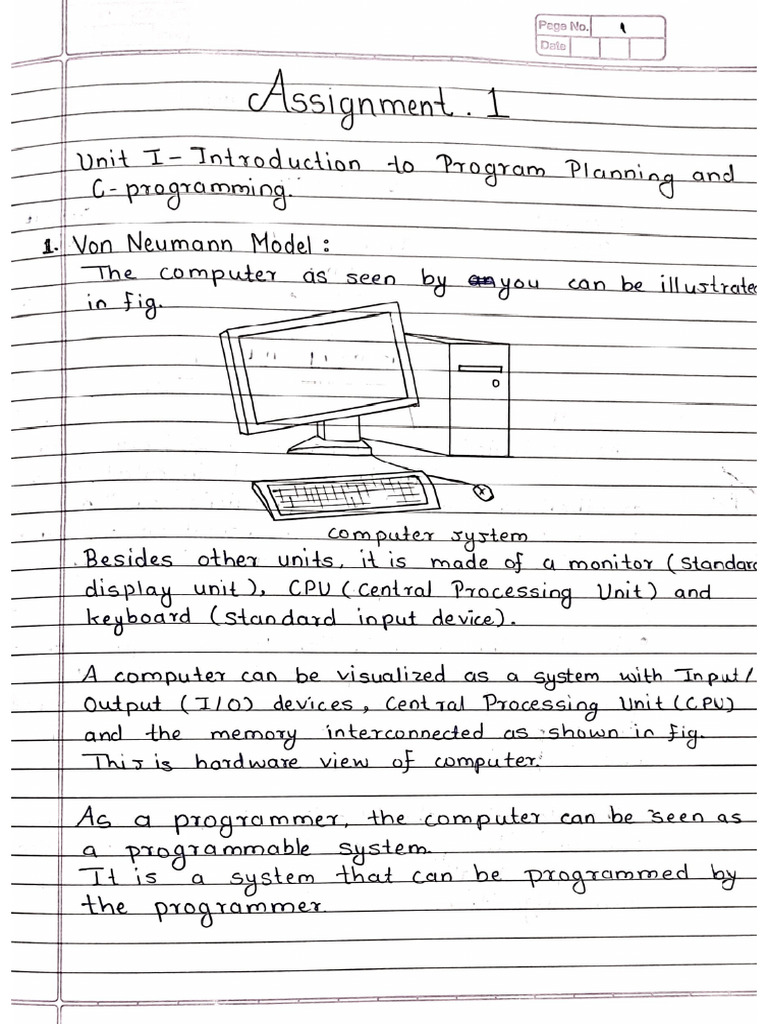 Page No. 1
Date
Assignment. 1
Unit I - Introduction to Program Planning and
C-programming.
1. Von Neumann Model :
The computer as seen by you can be illustrate
in fig.
computer system
Besides other units, it is made of a monitor (standard
display unit), CPU (Central Processing Unit) and
keyboard (standard input device).
A computer can be visualized as a system with Input/
Output (I/O) devices, Central Processing Unit (CPU)
and the memory interconnected as shown in fig.
This is hardware view of computer.
As a programmer, the computer can be seen as
a programmable system.
It is a system that can be programmed by
the programmer.